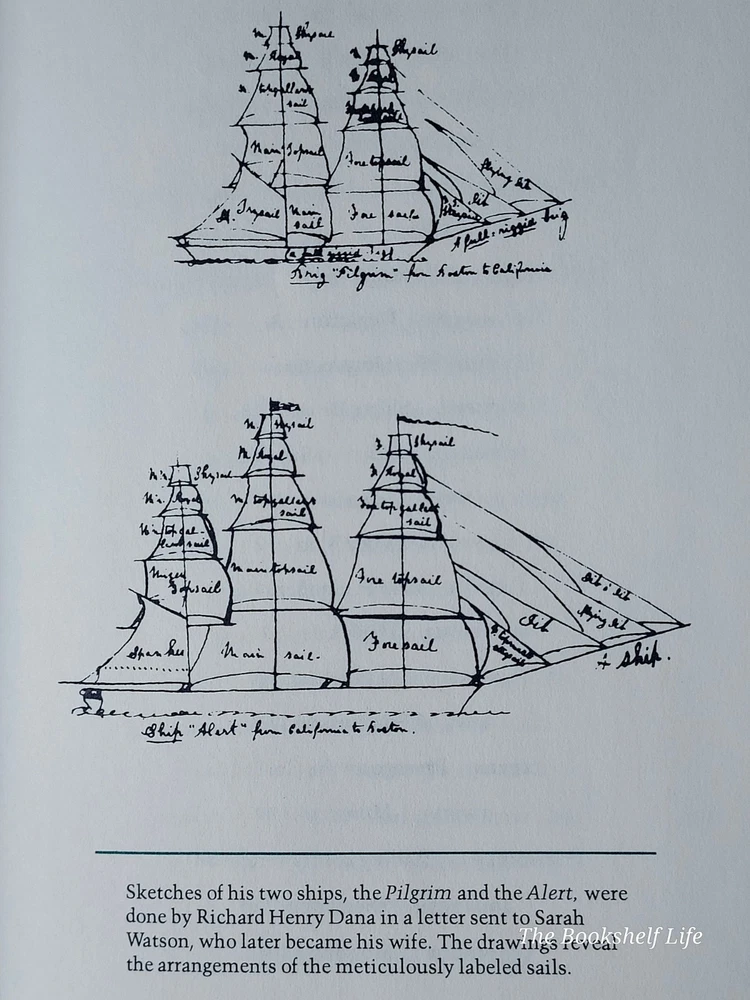 M. Skysail
Skysail
M. Royal
Royal
M. topgallant
sail
Main Topsail
Fore topsail
flying Jib
Jib
M. Trysail
Main
sail
Fore sail
A full-rigged brig
Brig "Pilgrim" from Boston to California
M. Skysail
F. Skysail
M. Royal
F. Royal
Miz. Skysail
Miz. Royal
M. topgallant
sail
Fore topgallant
sail
Miz. topgal-
lant sail
Mizen
Topsail
Main topsail
Fore topsail
Jib o' Jib
flying Jib
Jib
Spanker
Main sail.
Fore sail
A ship.
Ship "Alert" from California to Boston.
Sketches of his two ships, the Pilgrim and the Alert, were
done by Richard Henry Dana in a letter sent to Sarah
Watson, who later became his wife. The drawings reveal
the arrangements of the meticulously labeled sails.
The Bookshelf Life